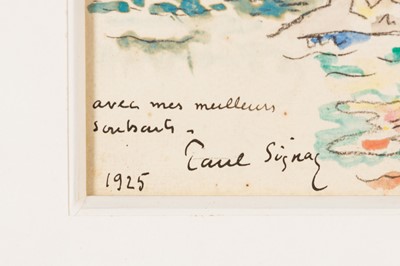 avec mes meilleurs
souhaits.
Paul Signac
1925